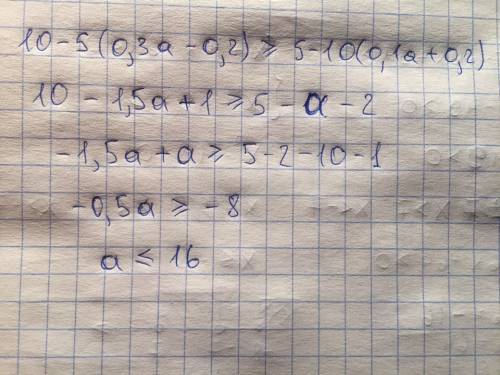 10-5(0,3a-0,2) ≥ 5-10(0,1a+0,2)
10-1,5a+1 ≥ 5-a-2
-1,5a+a ≥ 5-2-10-1
-0,5a ≥ -8
a ≤ 16